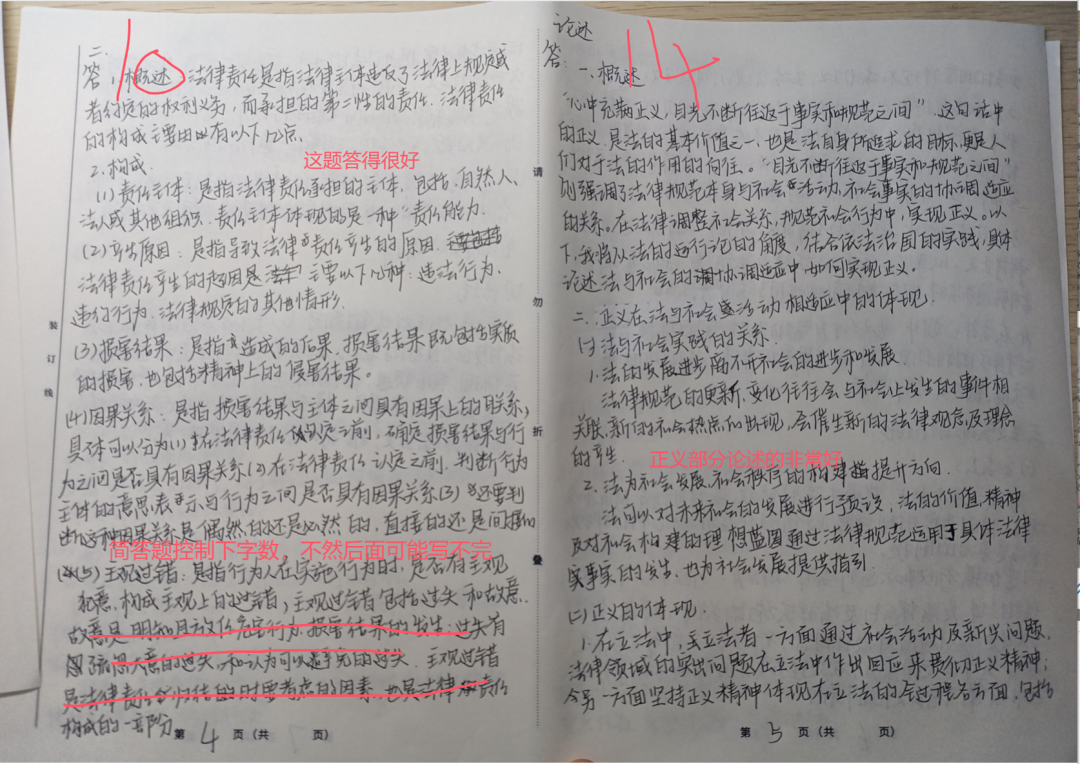 10
二.
答: 1.概述: 法律责任是指法律主体违反了法律上规定或
者约定的权利义务,而承担的第二性的责任.法律责任
的构成主要由以有以下几点.
2.构成.
这题答得很好
(1) 责任主体: 是指法律责任承担的主体,包括,自然人、
法人或其他组织.责任主体体现的是一种"责任能力.
(2) 产生原因: 是指导致法律责任产生的原因
法律责任产生的原因是 主要以下几种: 违法行为、
违约行为、法律规定的其他情形.
(3) 损害结果: 是指 造成的后果.损害结果既包括实质
的损害.也包括精神上的侵害结果。
(4) 因果关系: 是指损害结果与主体之间具有因果上的联系,
具体可以分为(1)在法律责任认定之前,确定损害结果与行
为之间是否具有因果关系(2)在法律责任认定之前.判断行为
主体的意思表示与行为之间是否具有因果关系(3)还要判
断这种因果关系是偶然的还是必然的,直接的还是间接的
简答题控制下字数,不然后面可能写不完
(5) 主观过错: 是指行为人在实施行为时,是否有主观
犯意.构成主观上的过错,主观过错包括过失和故意.
故意是明知且放任危害行为.损害结果的发生.过失有
疏忽大意的过失,和认为可以避免的过失.主观过错
是法律责任 归结的时要考虑的因素.也是法律责任
构成的一部分.
第 4 页(共 页)
装
订
线
请
勿
折
叠
14
论述
答:
一、概述
"心中充满正义,目光不断往返于事实和规范之间".这句话中
的正义.是法的基本价值之一,也是法自身所追求的目标,更是人
们对于法的作用的向往。"目光不断往返于事实和规范之间"
则强调了法律规范本身与社会活动.社会事实的协调适应
的关系。在法律调整社会关系,规范社会行为中,实现正义。以
下.我将从法的运行论的角度,结合依法治国的实践,具体
论述法与社会的协调适应中如何实现正义。
二、正义在法与社会活动相适应中的体现.
(一) 法与社会实践的关系.
1.法的发展进步离不开社会的进步和发展.
法律规范的更新、变化往往会与社会上发生的事件相
关联.新的社会热点的出现,会催生新的法律观念及理念
的产生.
正义部分论述的非常好
2.法为社会发展、社会秩序的构建指提升方向.
法可以对未来社会的发展进行预设,法的价值,精神
及对社会构建的理想蓝图通过法律规范运用于具体法律
事实的发生.也为社会发展提供指引.
(二) 正义的体现.
1.在立法中,立法者一方面通过社会活动及新兴问题,
法律领域的突出问题在立法中作出回应来贯彻正义精神;
另一方面坚持正义精神体现在立法的全过程各方面,包括
第 5 页(共 页)